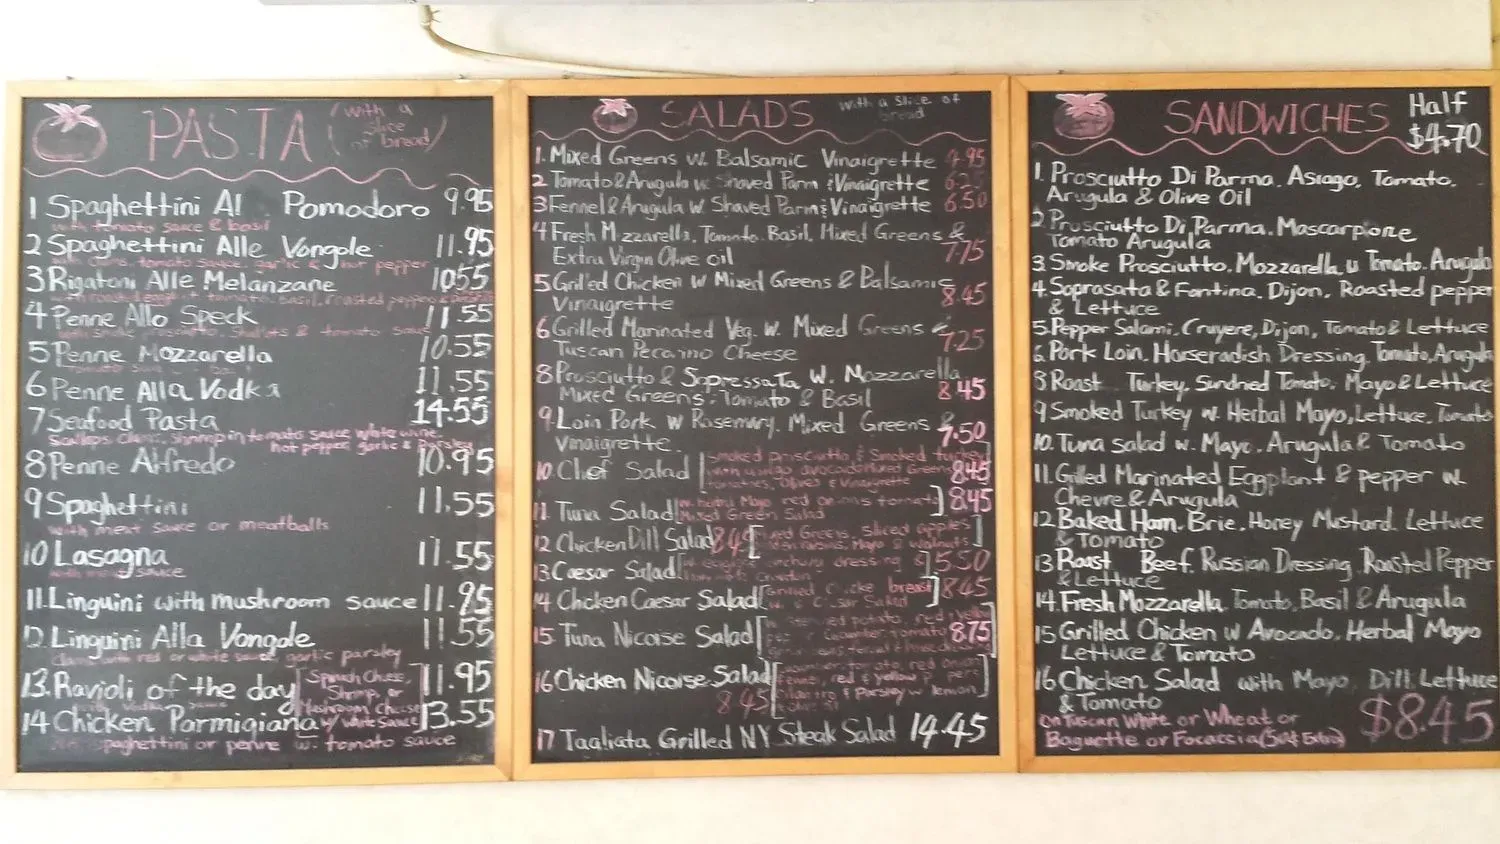 PASTA (with a slice of bread)
1 Spaghettini Al Pomodoro 9.95
with tomato sauce & basil
2 Spaghettini Alle Vongole 11.95
tomato sauce, garlic & hot pepper
3 Rigatoni Alle Melanzane 10.55
tomato, basil, roasted peppers
4 Penne Allo Speck 11.55
& tomato sauce
5 Penne Mozzarella 10.55
6 Penne Alla Vodka 11.55
7 Seafood Pasta 14.55
Scallops, Clams, shrimp in tomato sauce white wine
hot pepper, garlic & Parsley
8 Penne Alfredo 10.95
9 Spaghettini 11.55
with meat sauce or meatballs
10 Lasagna 11.55
sauce
11. Linguini with mushroom sauce 11.95
12. Linguini Alla Vongole 11.55
with red or white sauce, garlic parsley
13. Ravioli of the day [Spinach Cheese, Shrimp, or Mushroom Cheese 11.95
14 Chicken Parmigiana w/ White Sauce] 13.55
spaghettini or penne w. tomato sauce
SALADS with a slice of bread
1. Mixed Greens w. Balsamic Vinaigrette 4.95
2 Tomato & Arugula w. Shaved Parm & Vinaigrette
3 Fennel & Arugula w. Shaved Parm & Vinaigrette 6.50
4 Fresh Mozzarella, Tomato, Basil, Mixed Greens &
Extra Virgin Olive oil 7.75
5 Grilled Chicken w Mixed Greens & Balsamic
Vinaigrette 8.45
6 Grilled Marinated Veg. w. Mixed Greens &
Tuscan Pecarino Cheese 7.25
8 Prosciutto & Sopressata w. Mozzarella
Mixed Greens, Tomato & Basil 8.45
9. Loin Pork w Rosemary, Mixed Greens &
Vinaigrette 7.50
10. Chef Salad [Smoked prosciutto & Smoked turkey
avocado Mixed Greens
tomatoes, Olives & Vinaigrette 8.45
11. Tuna Salad [Mayo red onions tomato] 8.45
Mixed Green Salad
12 Chicken Dill Salad [Mixed Greens, sliced apples
raisins, Mayo & walnuts]
13 Caesar Salad [anchovy dressing &] 5.50
14 Chicken Caesar Salad [Grilled Chicke breast] 8.45
15. Tuna Nicoise Salad [potato, red & yellow
Cucumber, tomato 8.75
16 Chicken Nicoise Salad [cucumber, tomato, red onion
fennel, red & yellow
cilantro & Parsley w lemon] 8.45
17 Tagliata Grilled NY Steak Salad 14.45
SANDWICHES Half $4.70
1. Prosciutto Di Parma, Asiago, Tomato,
Arugula & Olive Oil
2 Prosciutto Di Parma, Mascarpone
Tomato Arugula
3. Smoke Prosciutto, Mozzarella w Tomato, Arugula
4. Soprasata & Fontina, Dijon, Roasted pepper
& Lettuce
5. Pepper Salami, Gruyere, Dijon, Tomato & Lettuce
6. Pork Loin, Horseradish Dressing, Tomato, Arugula
8 Roast Turkey, Sundried Tomato, Mayo & Lettuce
9 Smoked Turkey w. Herbal Mayo, Lettuce, Tomato
10. Tuna salad w. Mayo, Arugula & Tomato
11. Grilled Marinated Eggplant & pepper w.
Chevre & Arugula
12 Baked Ham, Brie, Honey Mustard, Lettuce
& Tomato
13 Roast Beef, Russian Dressing, Roasted Pepper
& Lettuce
14. Fresh Mozzarella, Tomato, Basil & Arugula
15 Grilled Chicken w Avocado, Herbal Mayo
Lettuce & Tomato
16 Chicken Salad with Mayo, Dill, Lettuce
& Tomato
On Tuscan White or Wheat or
Baguette or Focaccia (50¢ Extra) $8.45